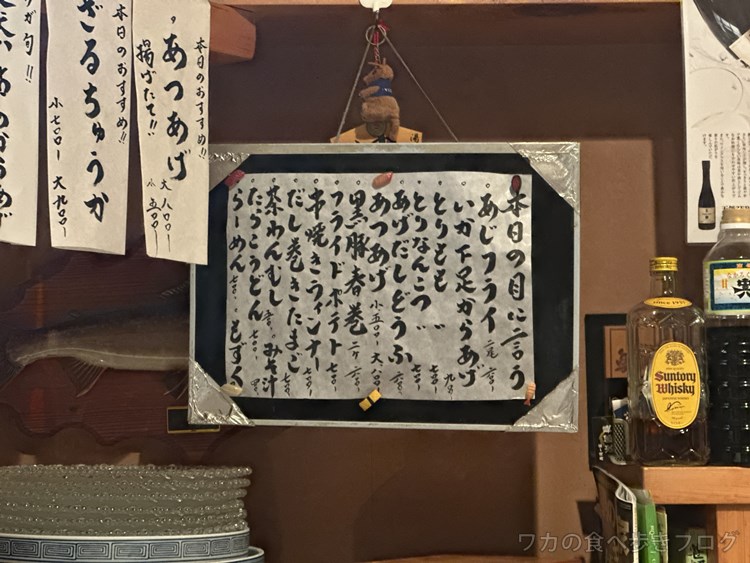 本日の目に言う
あじフライ 二尾 六〇〇ー
いか下足からあげ 九〇〇ー
とりもも 〃 七〇〇ー
とりなんこつ 〃 七〇〇ー
あげだしどうふ 六〇〇ー
あつあげ 小五〇〇ー 大八〇〇ー
黒豚春巻 二ヶ 六〇〇ー
フライドポテト 七〇〇ー
串焼きウィンナー 七〇〇ー
だし巻きたまご 七〇〇ー
茶わんむし みそ汁
たらこうどん 七〇〇ー
らーめん 七〇〇ー もずく
本日のおすすめ!!
あつあげ 大 八〇〇ー
揚げたて!! 小 五〇〇ー
本日のおすすめ!!
ざるちゅうか
小 七〇〇ー 大 九〇〇ー
が旬!!
からあげ
Suntory
Whisky
ワカの食べ歩きブログ